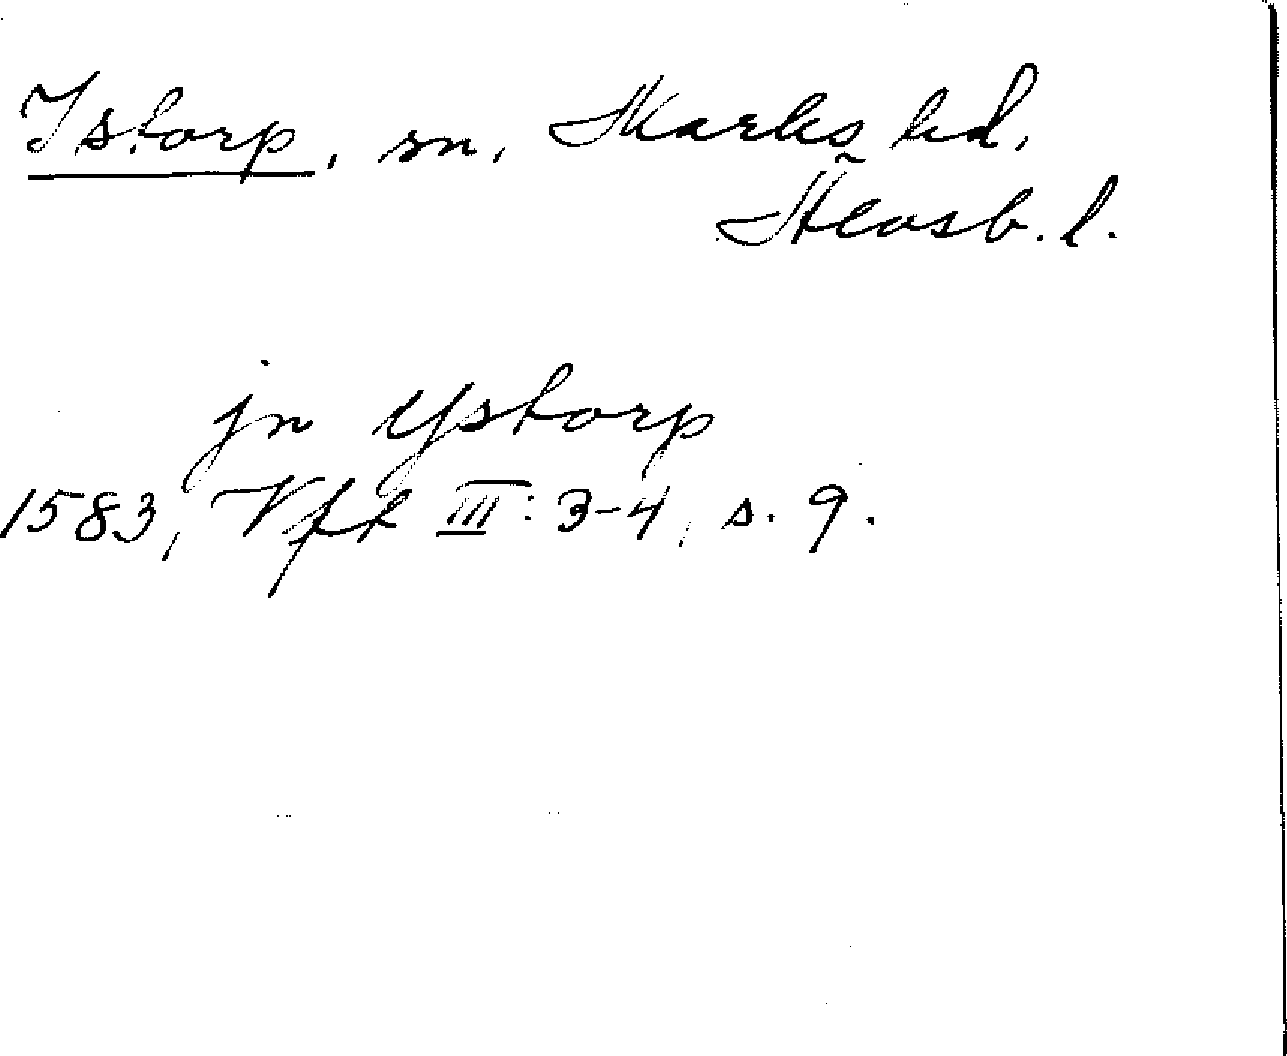 Istorp, sn, Marks hd.
Älvsb. l.
jn Ystorp
1583, Vfk III: 3-4, s. 9.